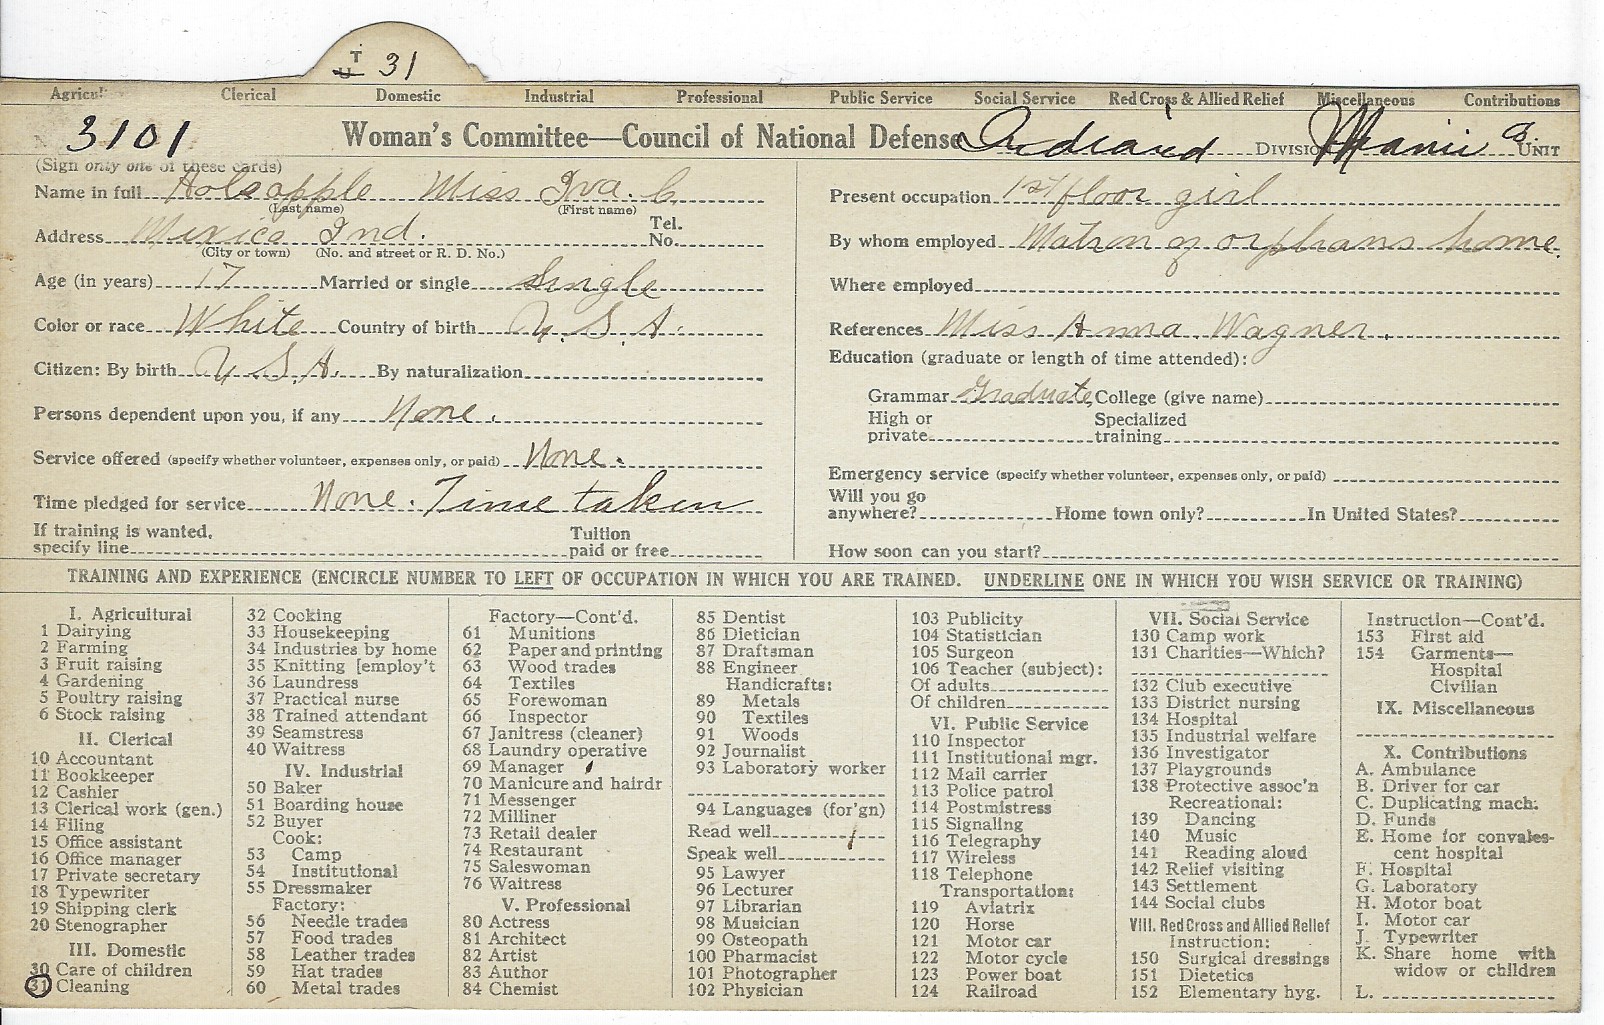 T
U 31
Agricul Clerical Domestic Industrial Professional Public Service Social Service Red Cross & Allied Relief Miscellaneous Contributions
3101 Woman's Committee—Council of National Defense Indiana DIVISION Miami Co. UNIT
(Sign only one of these cards)
Name in full Holsapple Miss Iva. C.
(Last name) (First name)
Address Mexico Ind. Tel. No.
(City or town) (No. and street or R. D. No.)
Age (in years) 17 Married or single Single
Color or race White Country of birth U. S. A.
Citizen: By birth U. S. A. By naturalization
Persons dependent upon you, if any None.
Service offered (specify whether volunteer, expenses only, or paid) None.
Time pledged for service None. Time taken
If training is wanted, specify line Tuition paid or free
Present occupation 1st floor girl
By whom employed Matron of orphans home.
Where employed
References Miss Anna Wagner.
Education (graduate or length of time attended):
Grammar Graduate, College (give name)
High or private Specialized training
Emergency service (specify whether volunteer, expenses only, or paid)
Will you go anywhere? Home town only? In United States?
How soon can you start?
TRAINING AND EXPERIENCE (ENCIRCLE NUMBER TO LEFT OF OCCUPATION IN WHICH YOU ARE TRAINED. UNDERLINE ONE IN WHICH YOU WISH SERVICE OR TRAINING)
I. Agricultural
1 Dairying
2 Farming
3 Fruit raising
4 Gardening
5 Poultry raising
6 Stock raising
II. Clerical
10 Accountant
11 Bookkeeper
12 Cashier
13 Clerical work (gen.)
14 Filing
15 Office assistant
16 Office manager
17 Private secretary
18 Typewriter
19 Shipping clerk
20 Stenographer
III. Domestic
30 Care of children
31 Cleaning
32 Cooking
33 Housekeeping
34 Industries by home
35 Knitting [employ't
36 Laundress
37 Practical nurse
38 Trained attendant
39 Seamstress
40 Waitress
IV. Industrial
50 Baker
51 Boarding house
52 Buyer
Cook:
53 Camp
54 Institutional
55 Dressmaker
Factory:
56 Needle trades
57 Food trades
58 Leather trades
59 Hat trades
60 Metal trades
Factory—Cont'd.
61 Munitions
62 Paper and printing
63 Wood trades
64 Textiles
65 Forewoman
66 Inspector
67 Janitress (cleaner)
68 Laundry operative
69 Manager
70 Manicure and hairdr
71 Messenger
72 Milliner
73 Retail dealer
74 Restaurant
75 Saleswoman
76 Waitress
V. Professional
80 Actress
81 Architect
82 Artist
83 Author
84 Chemist
85 Dentist
86 Dietician
87 Draftsman
88 Engineer
Handicrafts:
89 Metals
90 Textiles
91 Woods
92 Journalist
93 Laboratory worker
94 Languages (for'gn)
Read well
Speak well
95 Lawyer
96 Lecturer
97 Librarian
98 Musician
99 Osteopath
100 Pharmacist
101 Photographer
102 Physician
103 Publicity
104 Statistician
105 Surgeon
106 Teacher (subject):
Of adults
Of children
VI. Public Service
110 Inspector
111 Institutional mgr.
112 Mail carrier
113 Police patrol
114 Postmistress
115 Signaling
116 Telegraphy
117 Wireless
118 Telephone
Transportation:
119 Aviatrix
120 Horse
121 Motor car
122 Motor cycle
123 Power boat
124 Railroad
VII. Social Service
130 Camp work
131 Charities—Which?
132 Club executive
133 District nursing
134 Hospital
135 Industrial welfare
136 Investigator
137 Playgrounds
138 Protective assoc'n
Recreational:
139 Dancing
140 Music
141 Reading aloud
142 Relief visiting
143 Settlement
144 Social clubs
VIII. Red Cross and Allied Relief
Instruction:
150 Surgical dressings
151 Dietetics
152 Elementary hyg.
Instruction—Cont'd.
153 First aid
154 Garments—
Hospital
Civilian
IX. Miscellaneous
X. Contributions
A. Ambulance
B. Driver for car
C. Duplicating mach.
D. Funds
E. Home for convales-
cent hospital
F. Hospital
G. Laboratory
H. Motor boat
I. Motor car
J. Typewriter
K. Share home with
widow or children
L.